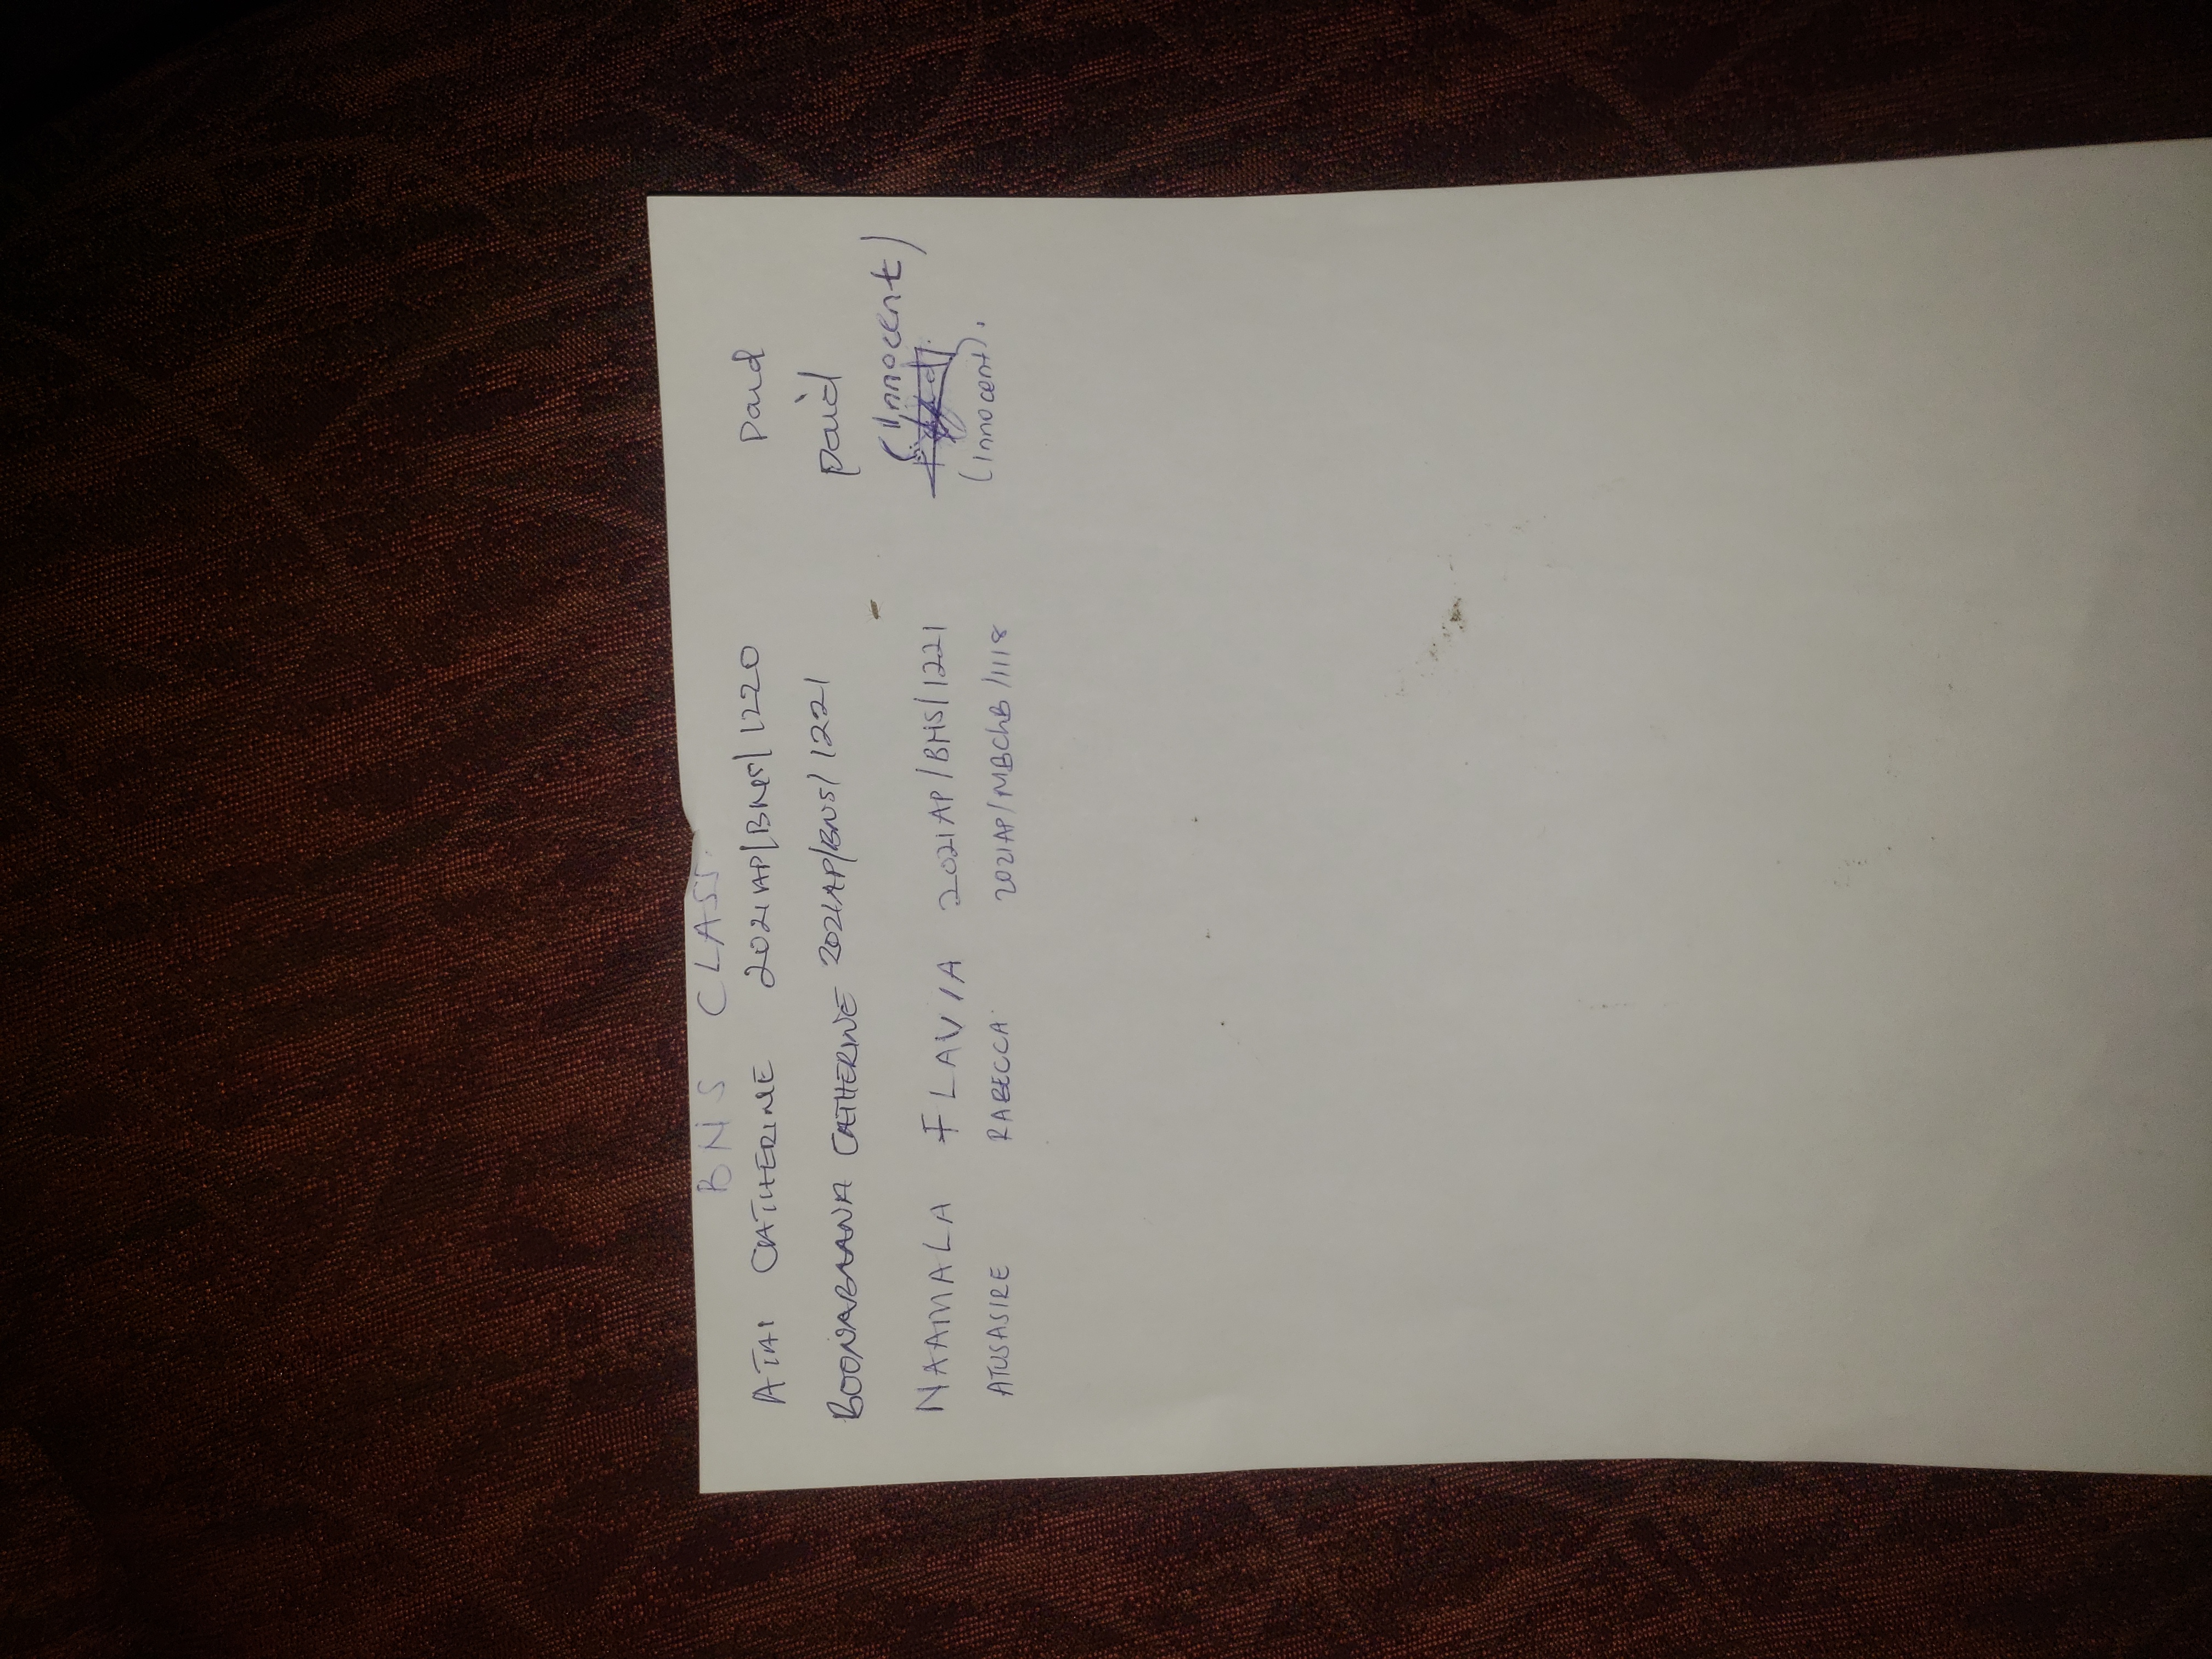 BNS CLASS.
ATAI CATHERINE 2021AP/BNS/1220 Paid
BOONABAANA CATHERINE 2021AP/BNS/1221 paid
(Innocent)
NAAMALA FLAVIA 2021AP/BNS/1221
ATUSASIRE RABECCA 2021AP/MBChB/1118 (Innocent).